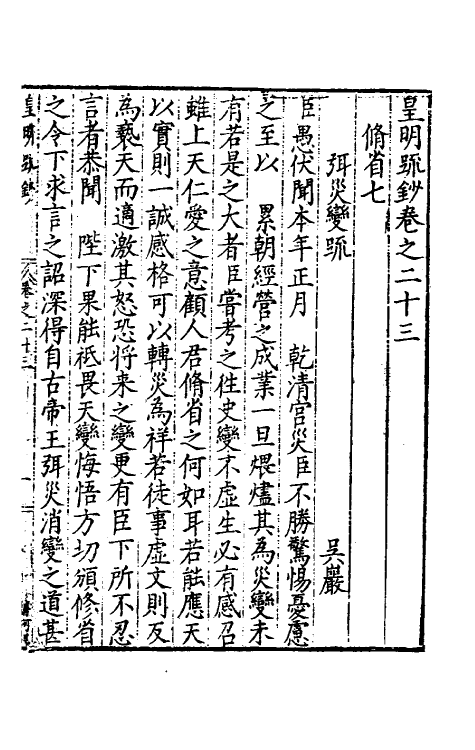 皇明䟽鈔卷之二十三
脩省七
弭災變䟽
吳嚴
臣愚伏聞本年正月　乾清宮災臣不勝驚惕憂慮
之至以　累朝經營之成業一旦煨燼其為災變未
有若是之大者臣嘗考之徃史變不虛生必有感召
雖上天仁愛之意顧人君脩省之何如耳若能應天
以實則一誠感格可以轉災為祥若徒事虛文則反
為褻天而適激其怒恐將來之變更有臣下所不忍
言者恭聞　陛下果能祇畏天變悔悟方切頒修省
之令下求言之詔深得自古帝王弭災消變之道甚
皇明䟽鈔
卷之二十三